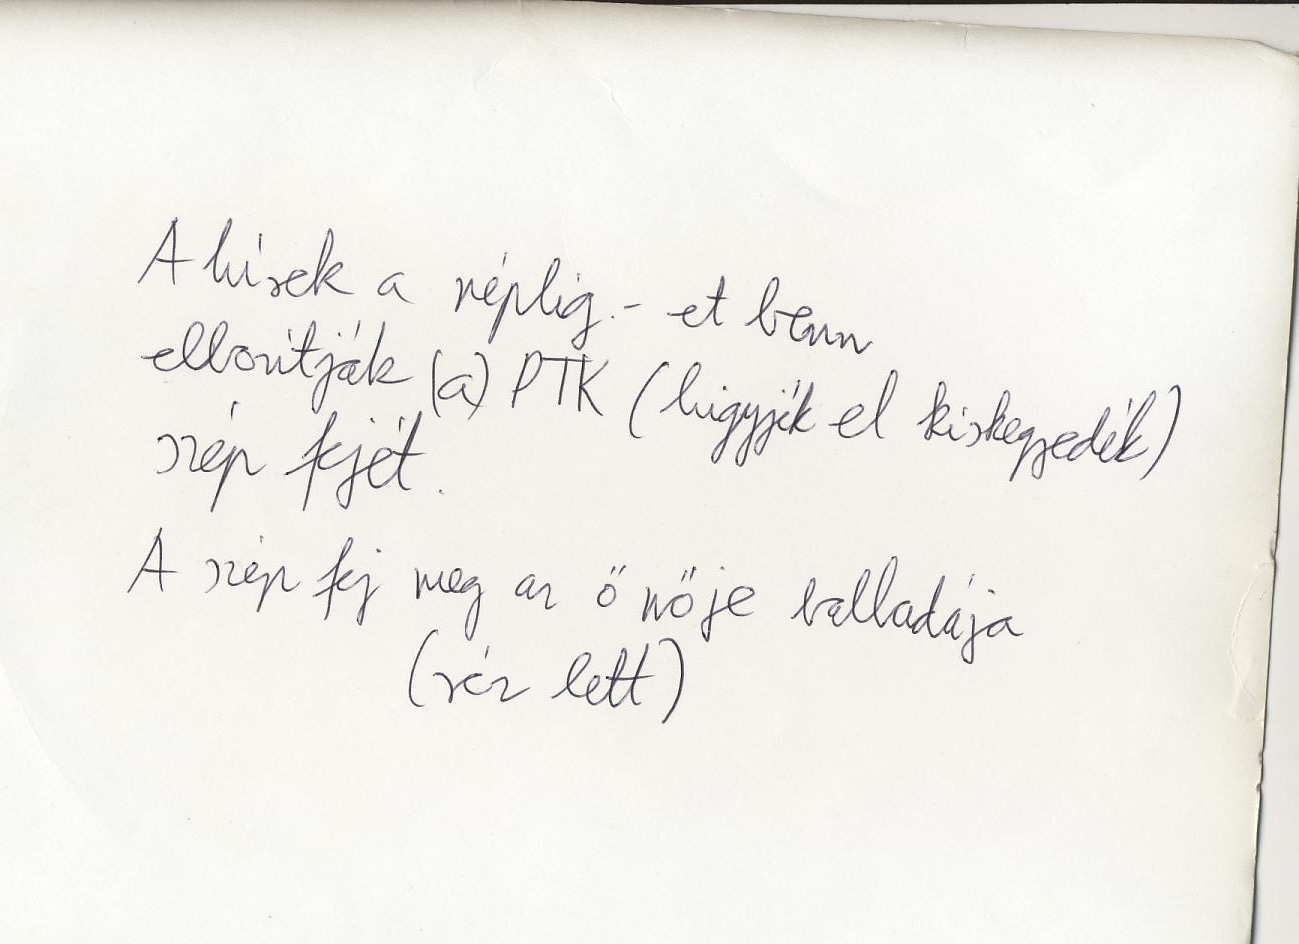 A hírek a néplig.- et benn
elborítják (a) PTK (higyjék el kiskegyedék)
szép fejét.
A szép fej meg az ő nője balladája
(réz lett)